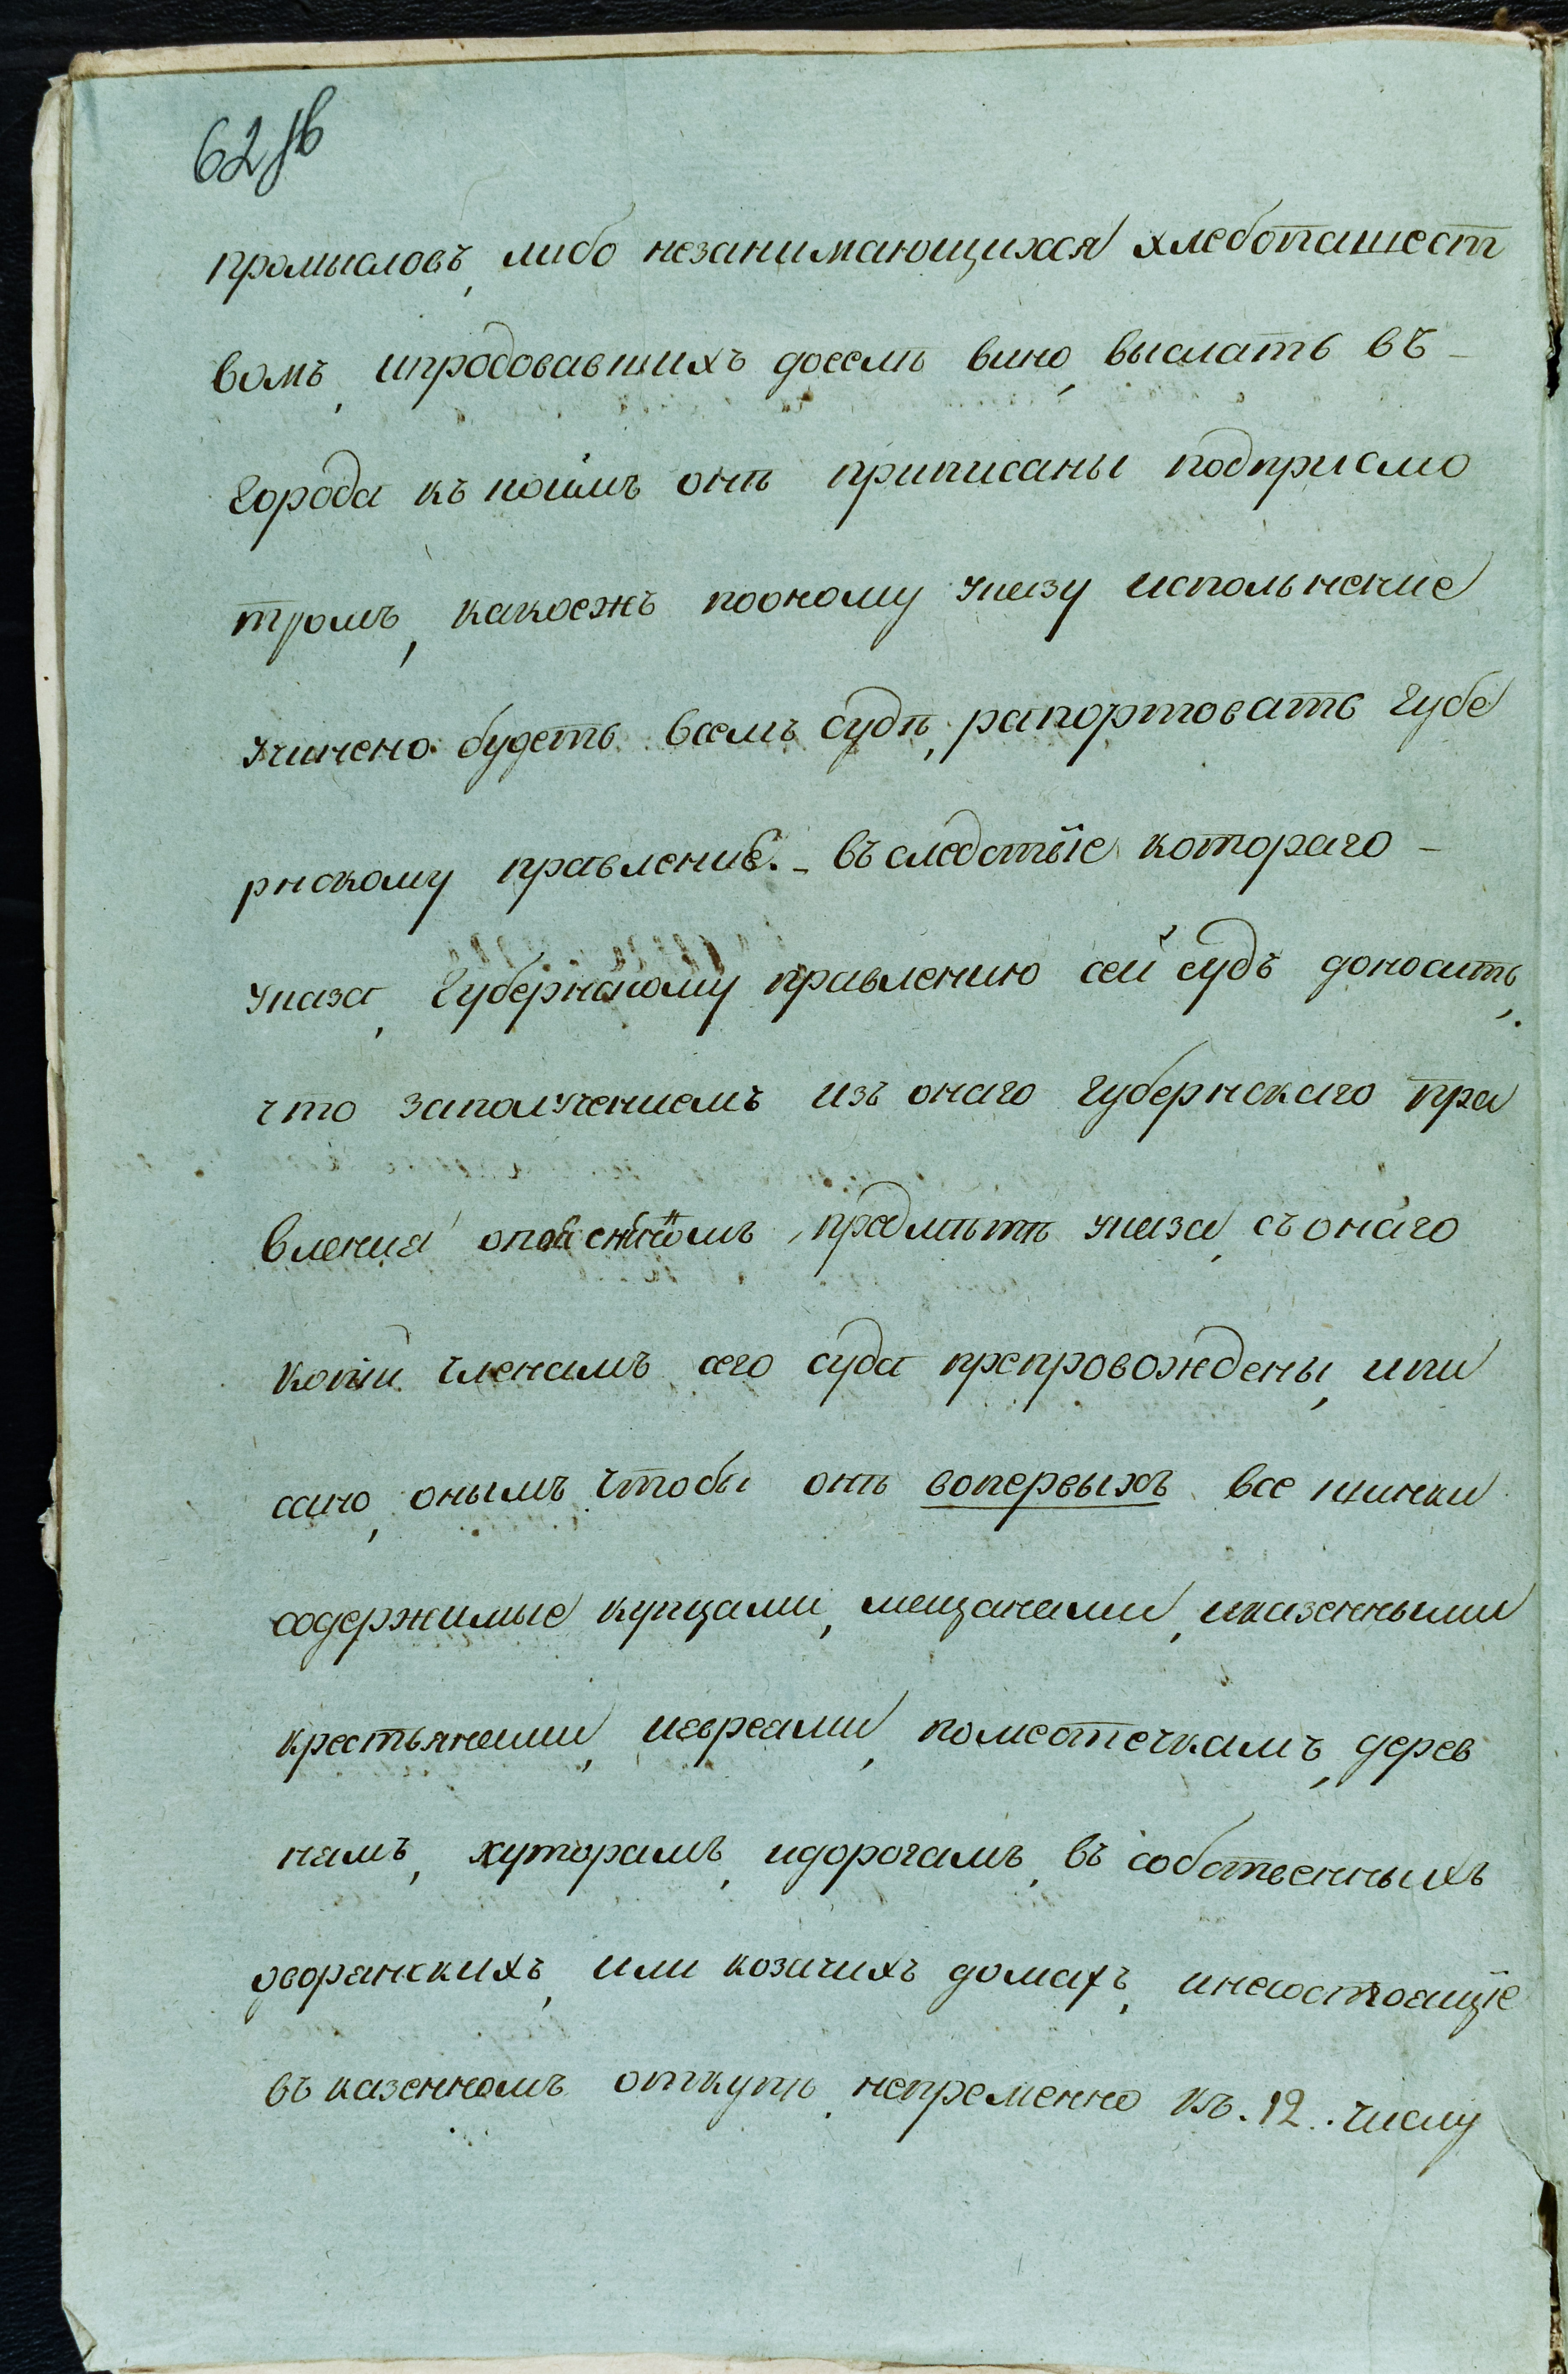 62 зв
промысловъ, либо незанимающихся хлебопашест
вомъ, ипродовавшихъ доселѣ вино, выслать въ -
города къ коимъ онѣ приписаны подприсмо
тромъ, какоежъ пооному указу испольнение
учинено будетъ всемъ судѣ, рапортовать губе
рнскому правление. - въ следствїе котораго -
указа, Губернскому правлению сей судъ доноситъ,
что заполучениемъ изъ онаго губернскаго пра
вления предмѣтѣ указа, съ онаго
копіи членамъ сего суда препровождены, ипи
сано, онымъ чтобы онѣ вопервыхъ все шинки
содержимые купцами, мещанами, иказенными
крестьянами, иевреами, поместечкамъ, дерев
нямъ, хуторамъ, идорогамъ, въ собственныхъ
дворянскихъ, или козачихъ домахъ, инесостоящїе
въ казенномъ откупѣ, непременно къ. 12. числу